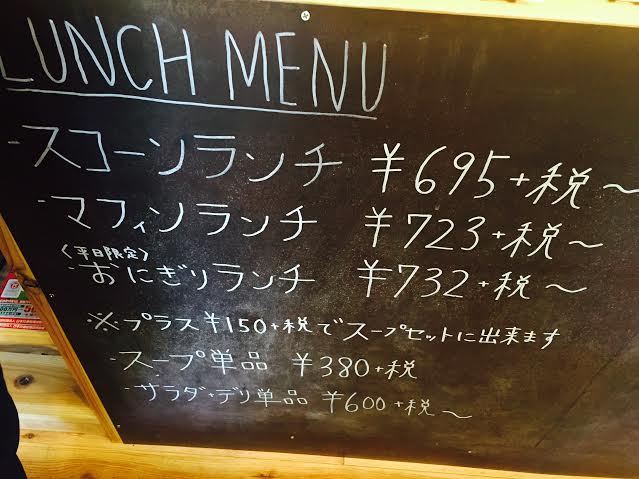 LUNCH MENU
・スコーンランチ ¥695+税～
・マフィンランチ ¥723+税～
〈平日限定〉
・おにぎりランチ ¥732+税～
※プラス¥150+税でスープセットに出来ます
・スープ単品 ¥380+税
・サラダ・デリ単品 ¥600+税～